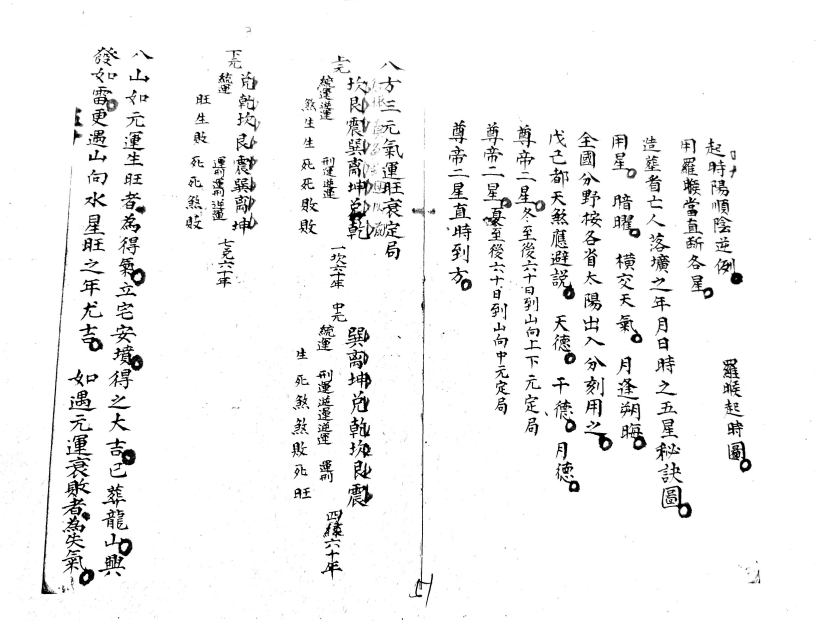 起時陽順陰逆例 羅睺起時圖
用羅睺當直斷各星
造塋者亡人落壙之年月日時之五星秘訣圖
用星 暗曜 橫交天氣 月逢朔晦
全國分野按各省太陽出入分刻用之
戊己都天煞應避説 天德 干德 月德
尊帝二星冬至後六十日到山向上下元定局
尊帝二星夏至後六十日到山向中元定局
尊帝二星直時到方
八方三元氣運旺衰定局
上元 坎艮震巽离坤兌乾 一坎六十年
統運 逆運 刑運 逆運
煞生生死死敗敗
中元 巽离坤兌乾坎艮震 四綠六十年
統運 刑運 逆運 逆運 運刑
生死煞煞敗死旺
下元 兌乾坎艮震巽离坤 七兌六十年
統運 運刑 運刑 逆運
旺生敗死死煞敗
八山如元運生旺者為得氣立宅安墳得之大吉已葬龍山興
發如雷更遇山向水星旺之年尤吉 如遇元運衰敗者為失氣